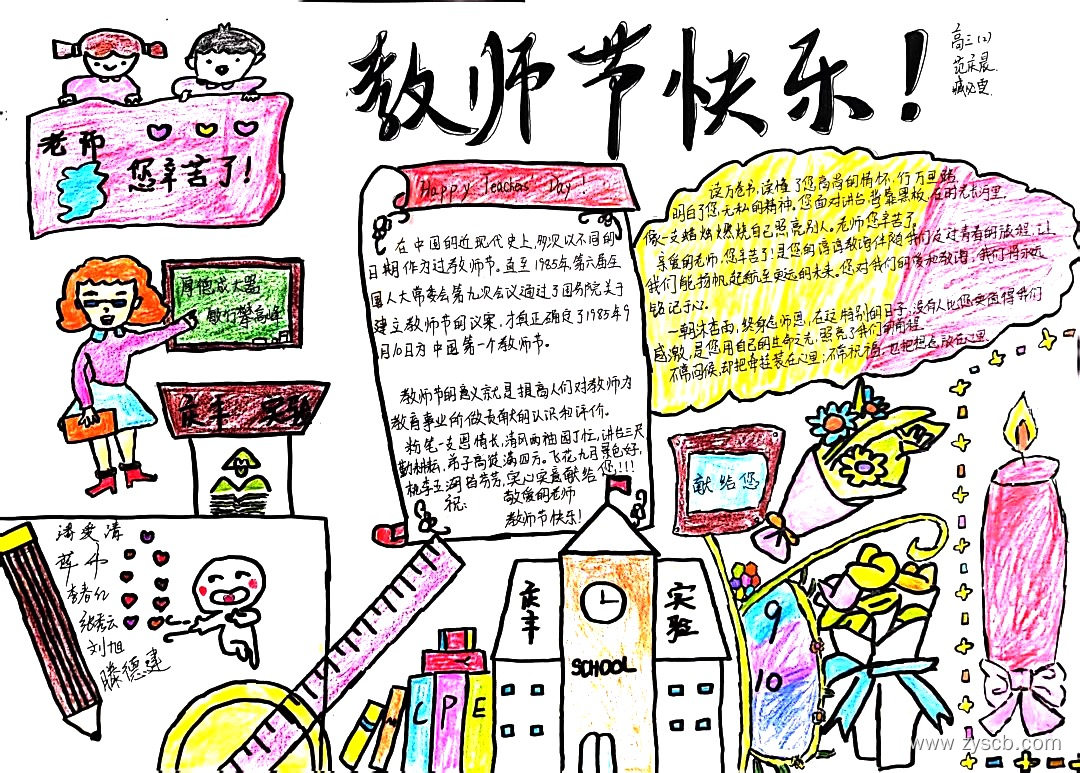 教师节快乐！
高三(2)
老师
您辛苦了！
Happy Teachers' Day!
在中国的近现代史上,多次以不同的
日期作为过教师节。直至1985年,第六届全
国人大常委会第九次会议通过了国务院关于
建立教师节的议案,才真正确定了1985年9
月10日为中国第一个教师节。
教师节的意义就是提高人们对教师为
教育事业所做贡献的认识和评价。
粉笔一支恩情长,清风两袖园丁忙,讲台三尺
勤耕耘,弟子高徒满四方。飞花九月景色好,
桃李五湖皆芳芳,实心实意献给您!!!
祝:
敬爱的老师
教师节快乐!
读万卷书,读懂了您高尚的情怀,行万里路,
明白了您无私的精神。您面对讲台背靠黑板,在时光长河里,
像一支蜡烛燃烧自己照亮别人。老师您辛苦了,
亲爱的老师,您辛苦了!是您的谆谆教诲伴随我们走过青春的旅程,让
我们能扬帆起航至更远的未来。您对我们的爱和教诲,我们将永远
铭记于心。
一朝沐杏雨,终身念师恩,在这特别的日子,没有人比您更值得我们
感激,是您用自己的生命之光,照亮了我们的前程
不常问候,却把牵挂装在心里;不常祝福,也把想念放在心里.
厚德成大器
敏行攀高峰
庆丰 实验
献给您
李春红
张秀云
刘旭
滕德建
庆丰
实验
SCHOOL
C P E
9
10
www.zyscb.com